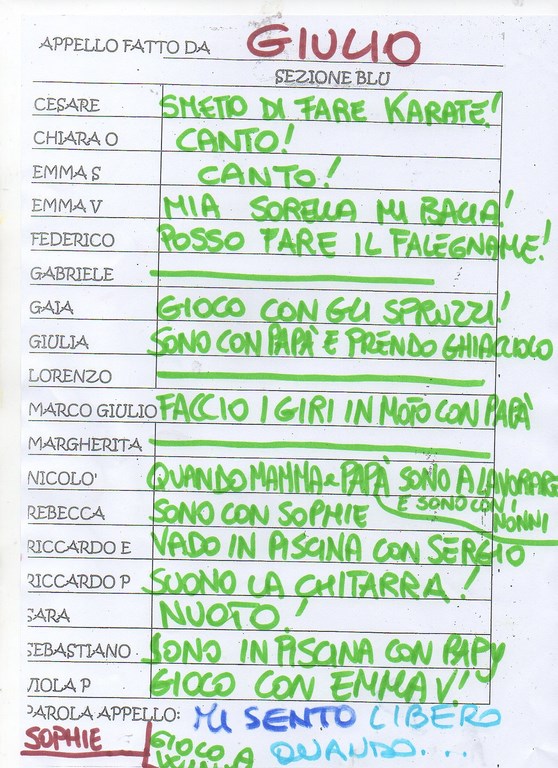 APPELLO FATTO DA GIULIO
SEZIONE BLU
CESARE SMETTO DI FARE KARATE!
CHIARA O CANTO!
EMMA S CANTO!
EMMA V MIA SORELLA MI BACIA!
FEDERICO POSSO FARE IL FALEGNAME!
GABRIELE
GAIA GIOCO CON GLI SPRUZZI!
GIULIA SONO CON PAPÀ E PRENDO GHIACCIOLO
LORENZO
MARCO GIULIO FACCIO I GIRI IN MOTO CON PAPÀ
MARGHERITA
NICOLO' QUANDO MAMMA e PAPÀ SONO A LAVORARE
E SONO CON I NONNI
REBECCA SONO CON SOPHIE
RICCARDO E VADO IN PISCINA CON SERGIO
RICCARDO P SUONO LA CHITARRA!
SARA NUOTO!
SEBASTIANO SONO IN PISCINA CON PAPY
VIOLA P GIOCO CON EMMA V!
PAROLA APPELLO: MI SENTO LIBERO
QUANDO...
SOPHIE GIOCO